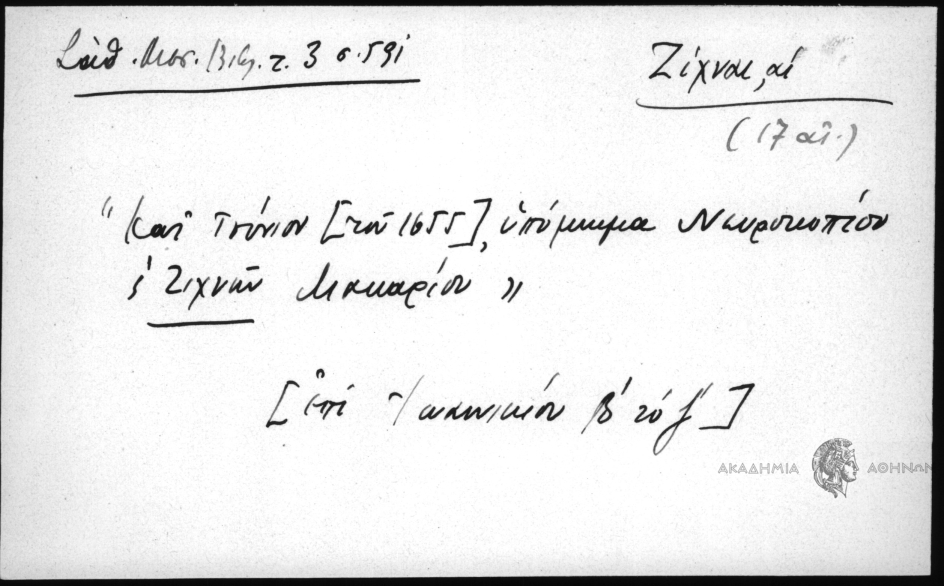 Σάθ. Μεσ. Βιβ. τ. 3 σ. 591
Ζίχναι, αἱ
(17 αἰ.)
"κατ' Ἰούνιον [τοῦ 1655], ὑπόμνημα Νευροκοπίου
ἐ Ζιχνῶν Μακαρίου"
[ἐπὶ Ἰωαννικίου Β' τὸ ζ']
ΑΚΑΔΗΜΙΑ ΑΘΗΝΩΝ